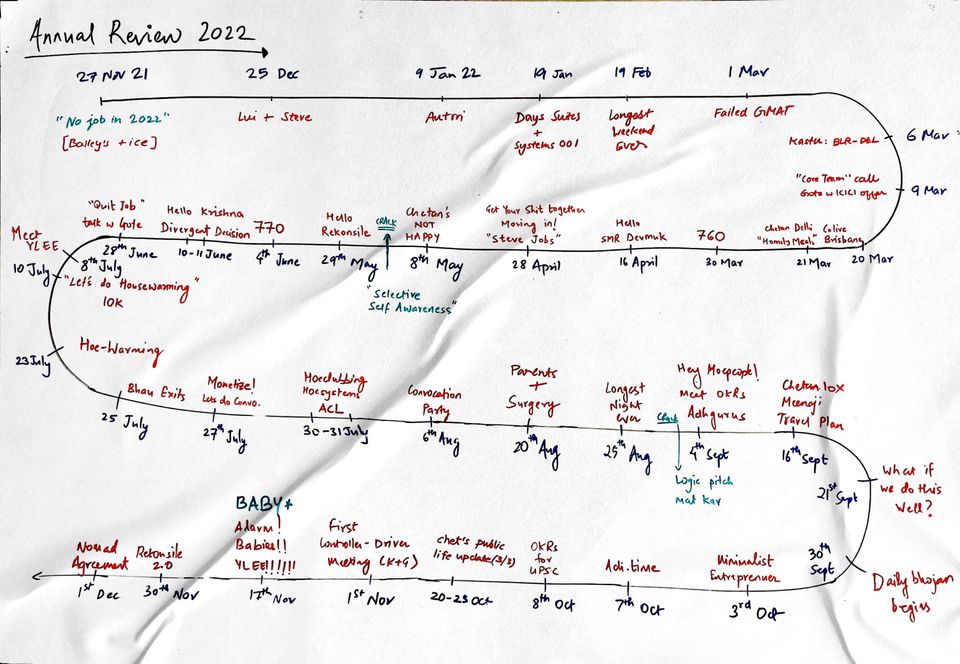 Annual Review 2022
27 Nov 21
25 Dec
9 Jan 22
19 Jan
19 Feb
1 Mar
"No job in 2022"
[Bailey's + ice]
Lui + Steve
Autori
Days Suites
+
Systems 001
Longest
Weekend
Ever
Failed GMAT
Kastu: BLR-DEL
6 Mar
"Core Team" call
Goto w ICICI offer
9 Mar
Meet
YLEE
"Quit Job"
talk w Gote
Hello Krishna
Divergent Decision
770
Hello
Rekonsile
CRACK
Chetan's
NOT
HAPPY
Get Your Shit together
Moving in!
"Steve Jobs"
Hello
SMR Devmuk
760
Chetan Delhi
"Homits Meals"
Colive
Brisbane
10 July
8th July
28th June
10-11 June
4th June
29th May
8th May
28 April
16 April
30 Mar
21 Mar
20 Mar
"Let's do "Housewarming"
10K
"Selective
Self Awareness"
23 July
Hoe-Warming
Bhau Exits
Monetize!
Lets do Convo.
Hoeclubbing
Hoesystems
ACL
Convocation
Party
Parents
+
Surgery
Longest
Night
ever
Crack
Hey Hoepeople!
Meet OKRs
Adhgurus
Chetan 10x
Meenoji
Travel Plan
25 July
27th July
30-31 July
6th Aug
20th Aug
25th Aug
Logic pitch
mat kar
4th Sept
16th Sept
21st Sept
What if
we do this
Well?
Nomad
Agreement
Rekonsile
2.0
BABY*
Alarm!
Babies!!
YLEE!!!!!
First
Controller-Driver
Meeting (K+G)
Chet's public
life update (3/3)
OKRs
for
UPSC
Adi-time
Minimalist
Entreprenuer
30th
Sept
Daily bhojan
begins
1st Dec
30th Nov
17th Nov
1st Nov
20-23 Oct
8th Oct
7th Oct
3rd Oct